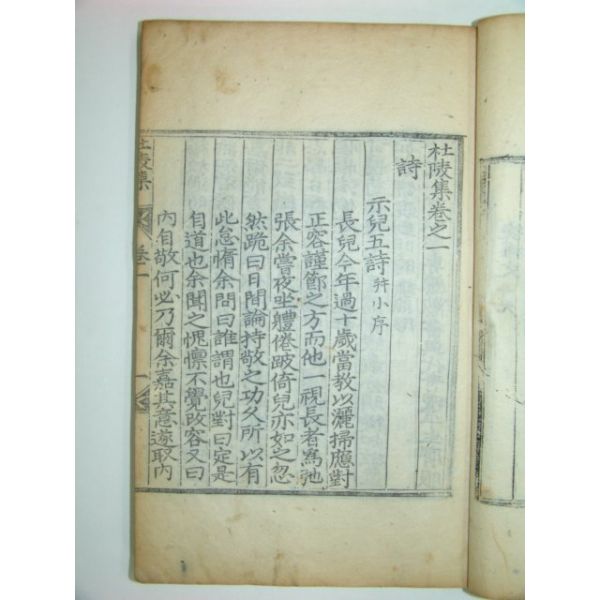 杜陵集卷之一
詩
示兒五詩 幷小序
長兒今年過十歲當敎以灑掃應對
正容謹節之方而他一視長者爲弛
張余嘗夜坐軆倦跛倚兒亦如之忽
然跪曰日間論持敬之功久所以有
此怠惰余問曰誰謂也兒對曰定是
自道也余聞之愧懔不覺改容又曰
內自敬何必乃爾余嘉其意遂取內
杜陵集
卷一
一